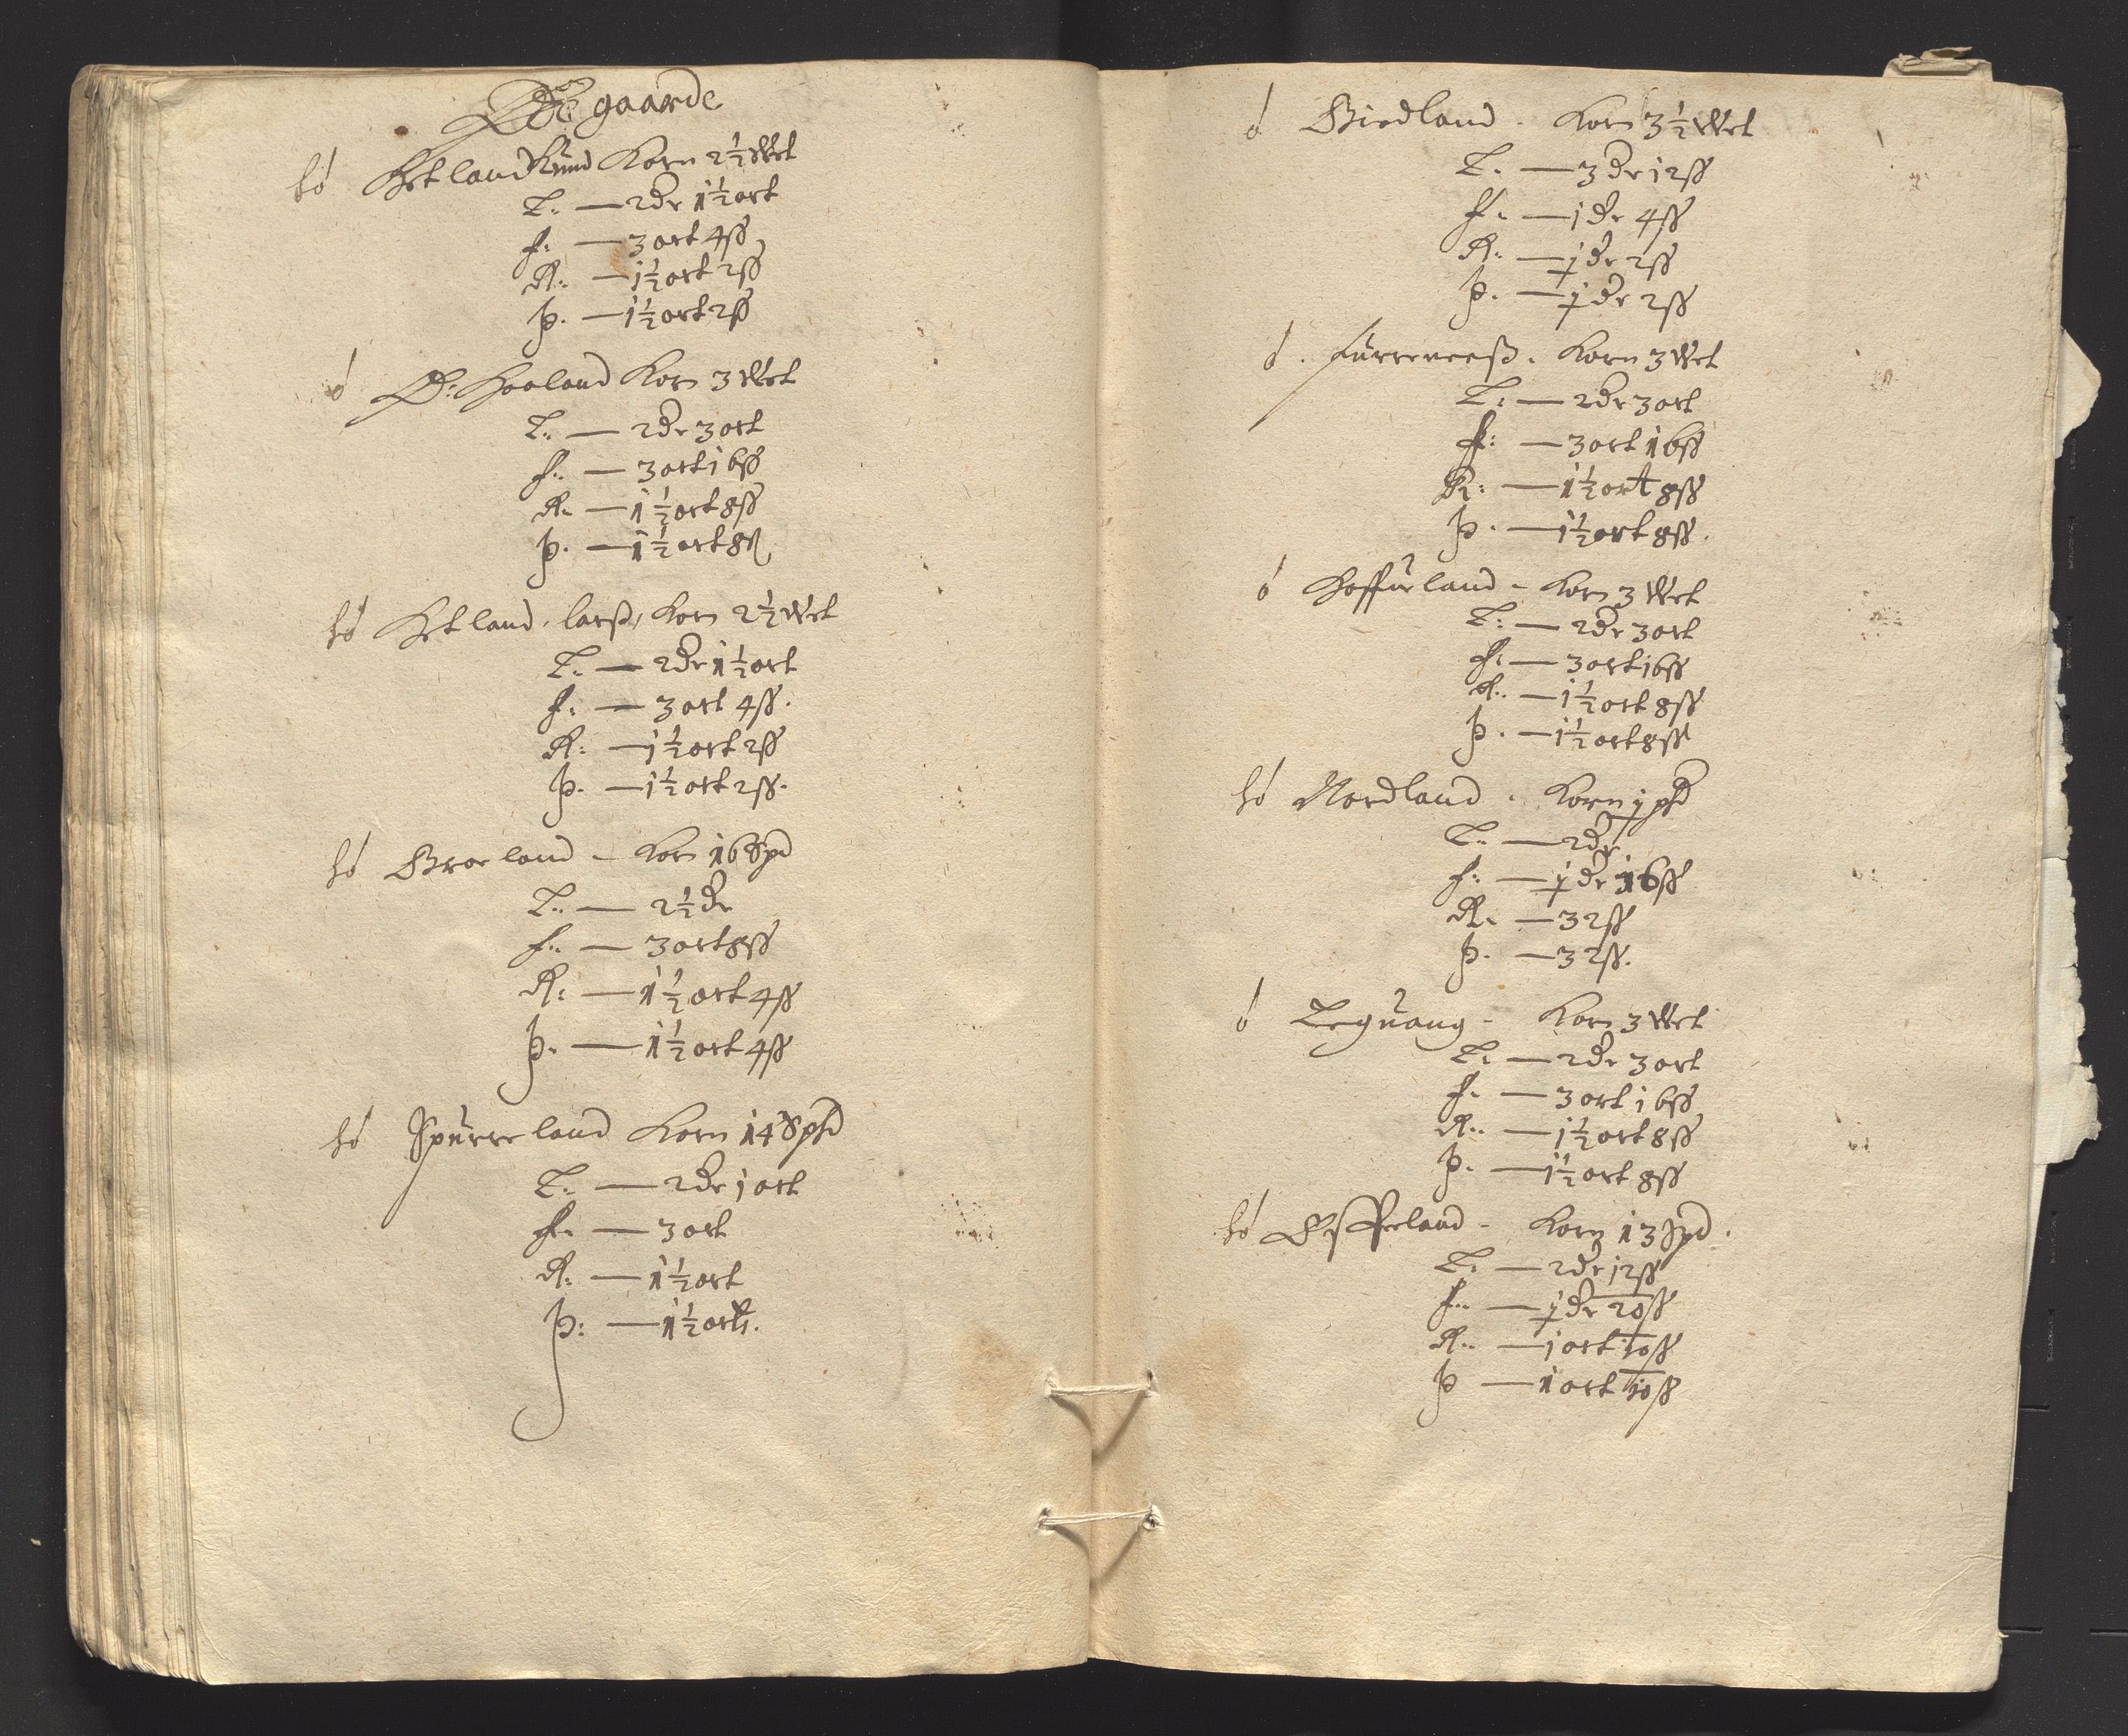 Øde gaarde
hó Hetland Knud Korn 2½ Wet
T: — 2 dr 1½ ort
f: — 3 ort 4 ß
K: — 1½ ort 2 ß
þ. — 1½ ort 2 ß
ó Ø: Haaland Korn 3 Wet
T: — 2 dr 3 ort
f: — 3 ort 16 ß
K. — 1½ ort 8 ß
þ. — 1½ ort 8 ß
hó Hetland, larß, Korn 2½ Wet
T: — 2 dr 1½ ort
f: — 3 ort 4 ß.
K: — 1½ ort 2 ß
þ. — 1½ ort 2 ß.
hó Broeland - Korn 16 Spd
T: — 2½ dr
f: — 3 ort 8 ß
K: — 1½ ort 4 ß
þ. — 1½ ort 4 ß
hó Spurreland Korn 14 Spd
T: — 2 dr 1 ort
f. — 3 ort
K: — 1½ ort
þ: — 1½ ort.
ó Birdland - Korn 3½ Wet
T. — 3 dr 12 ß
f. — 1 dr 4 ß
K: — ½ dr 2 ß
þ. — ½ dr 2 ß
ó. furreneeß. Korn 3 Wet
T: — 2 dr 3 ort
f: — 3 ort 16 ß
K: — 1½ ort 8 ß
þ. — 1½ ort 8 ß.
ó Hoffuland - Korn 3 Wet
T: — 2 dr 3 ort
f. — 3 ort 16 ß
K. — 1½ ort 8 ß
þ. — 1½ ort 8 ß
hó Nordland. Korn ½ pd
T. — 2 dr
f: — ½ dr 16 ß
K. — 32 ß
þ. — 32 ß.
ó Teguang - Korn 3 Wet
T: — 2 dr 3 ort
f. — 3 ort 16 ß
K. — 1½ ort 8 ß
þ. — 1½ ort 8 ß
hó Korn 13 Spd.
T. — 2 dr 12 ß
f. — ½ dr 20 ß
K. — 1 ort 10 ß
þ — 1 ort 10 ß